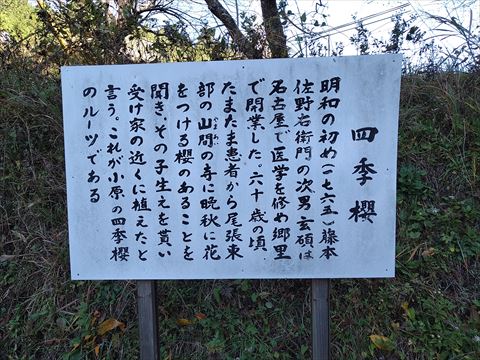 四季櫻
明和の初め(一七六五)藤本
佐野右衛門の次男玄碩は
名古屋で医学を修め郷里
で開業した。六十歳の頃、
たまたま患者から尾張東
部の山間の寺に晩秋に花
をつける櫻のあることを
聞き、その子生えを貰い
受け家の近くに植えたと
言う。これが小原の四季櫻
のルーツである